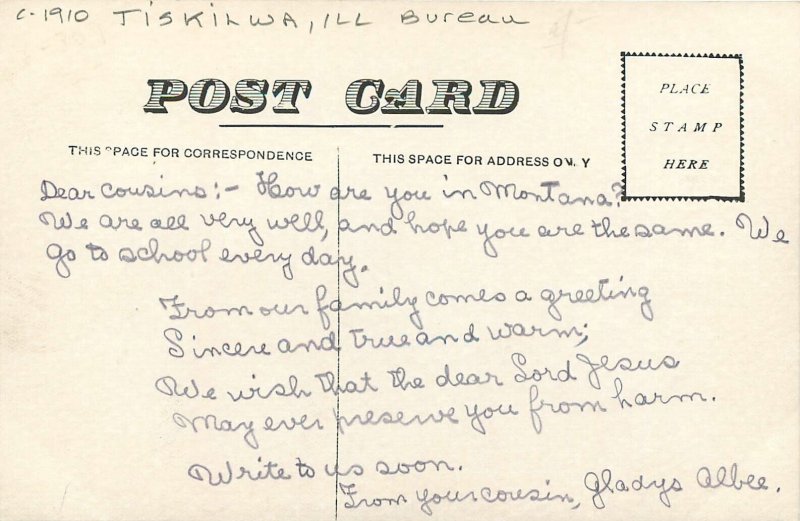 c-1910 TISKILWA, ILL Bureau
POST CARD
PLACE
STAMP
HERE
THIS SPACE FOR CORRESPONDENCE
THIS SPACE FOR ADDRESS ONLY
Dear Cousins:- How are you in Montana?
We are all very well, and hope you are the same. We
go to school every day.
From our family comes a greeting
Sincere and true and warm;
We wish that the dear Lord Jesus
May ever preserve you from harm.
Write to us soon.
From your cousin, Gladys Albee.